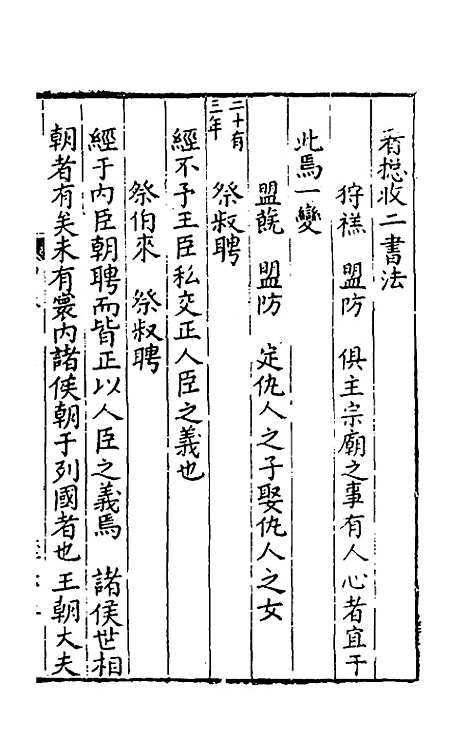 看捴收二書法
狩禚　盟防　俱主宗廟之事有人心者宜于
此焉一變
盟蔇　盟防　定仇人之子娶仇人之女
二十有三年
祭叔聘
經不予王臣私交正人臣之義也
祭伯來　祭叔聘
經于內臣朝聘而皆正以人臣之義焉　諸侯世相
朝者有矣未有寰內諸侯朝于列國者也王朝大夫